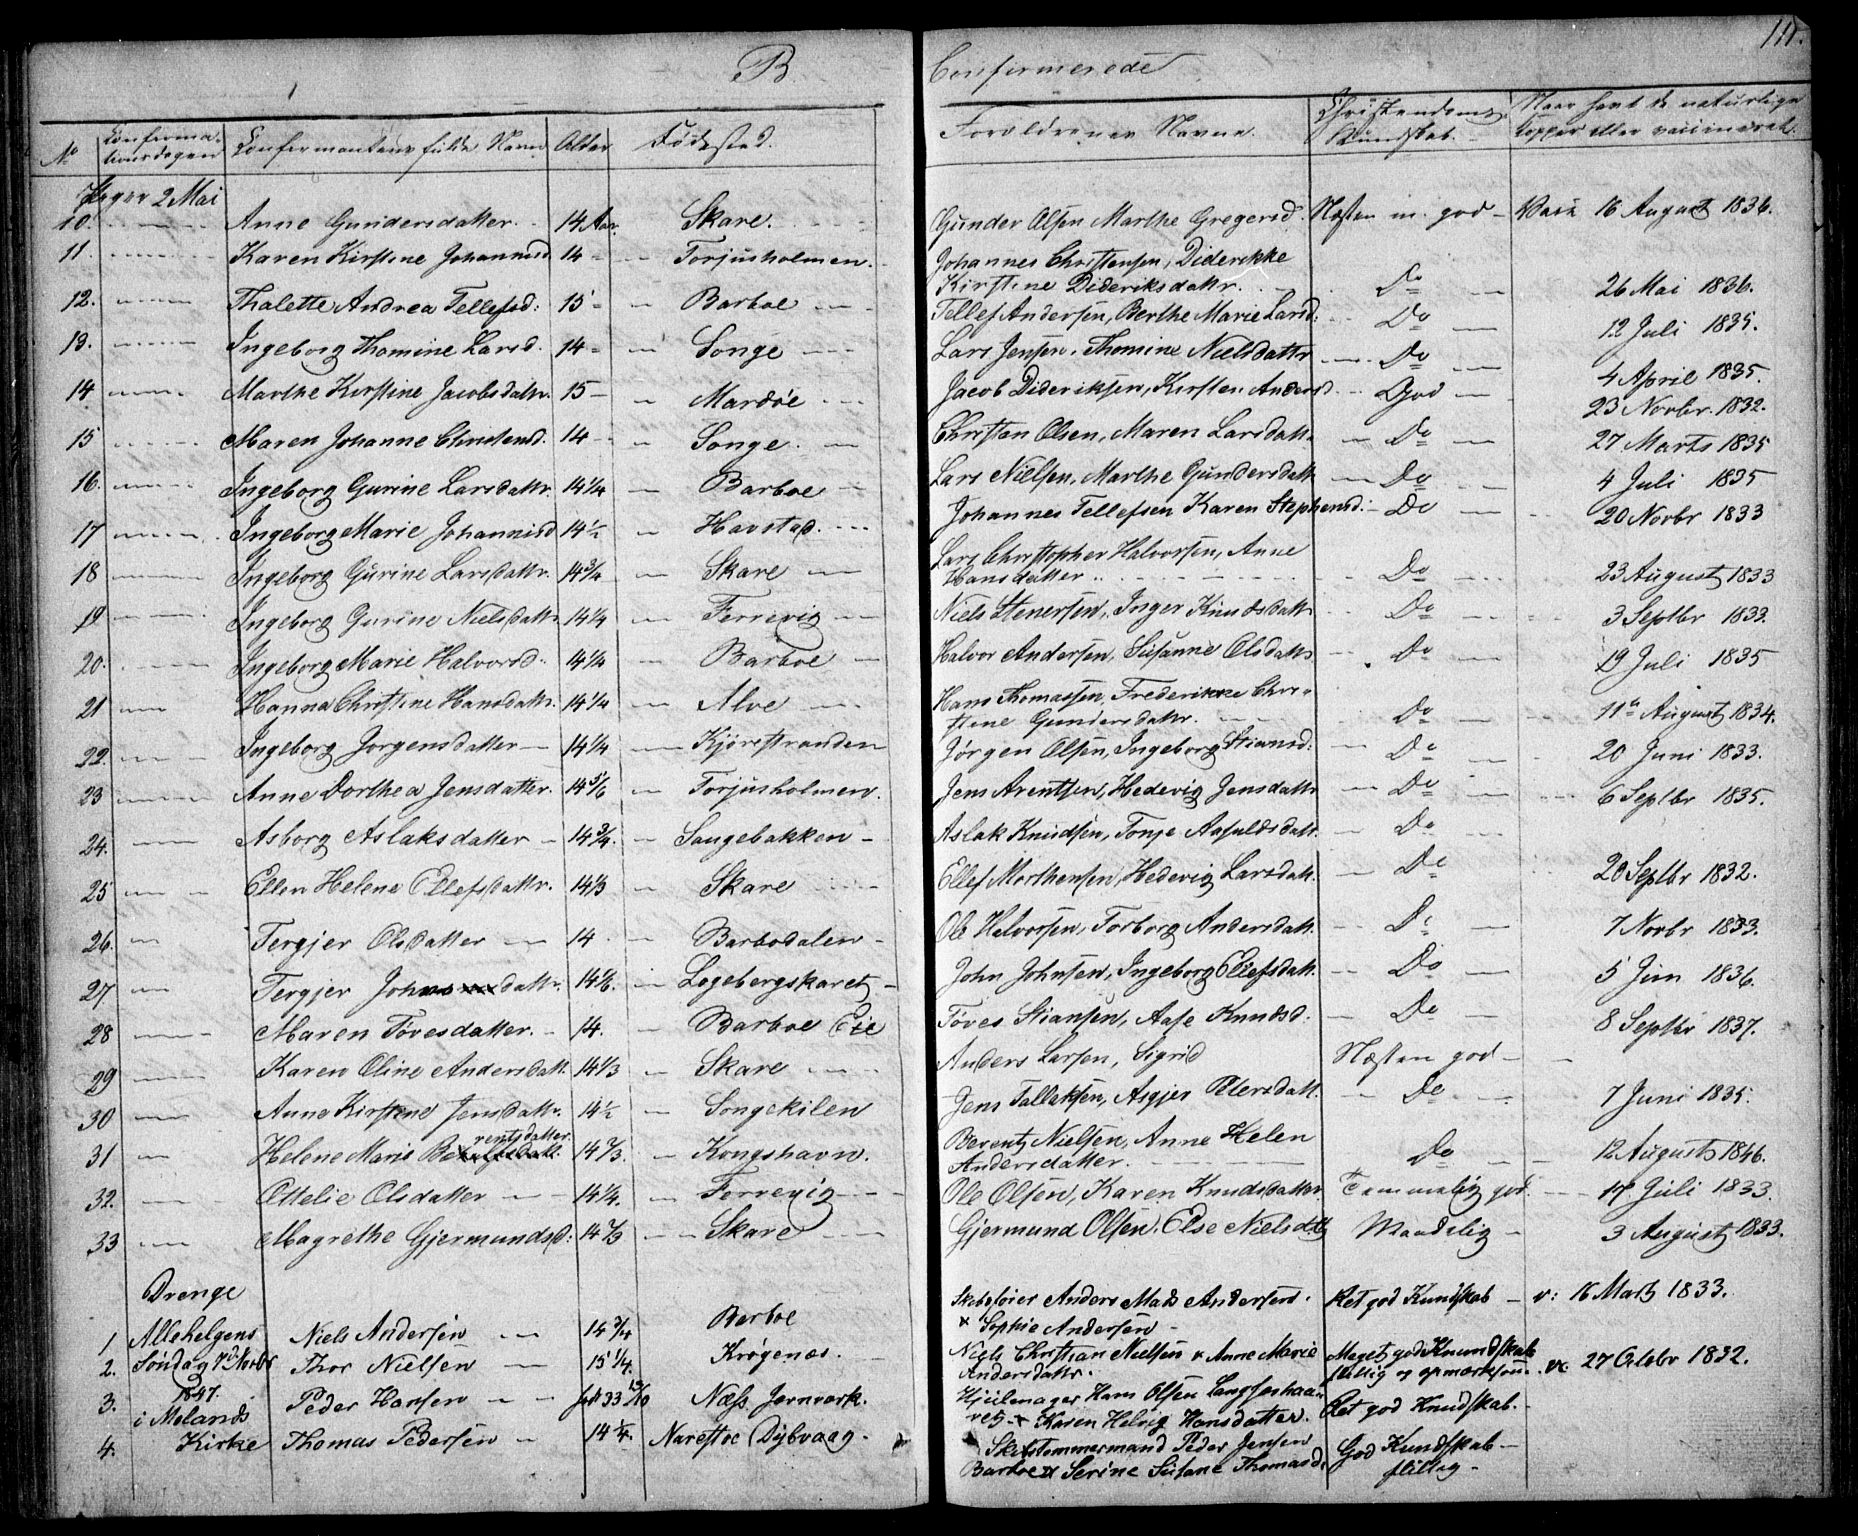 B Confirmerede 111.
No Confirmationsdagen Confirmantens fulde Navn Alder Fødested. Forældrenes Navne Christendoms Kundskab. Naar havt de naturlige Copper eller vaccineret.
2 Mai
10. Anne Gundersdatter. 14 Aar. Skare. Gunder Olsen Marthe Gregersd. Næsten m. god - Vacc 16 August 1836.
11. Karen Kirstine Johannesd 14 - Torjusholmen. Johannes Christensen, Diderikke
Kirstine Dideriksdattr. Do 26 Mai 1836.
12. Thalette Andrea Tellefsd: 15 - Barboe - Tellef Andersen, Berthe Marie Larsd: Do 12 Juli 1835.
13. Ingeborg Thomine Larsd. 14 - Songe - Lars Jensen, Thomine Nielsdattr Do 4 April 1835.
14 Marthe Kirstine Jacobsdattr. 15 - Mardøe Jacob Dideriksen, Kirsten Andersd God 23 Novbr. 1832.
15 Maren Johanne Christensd. 14 - Songe. Christen Olsen, Maren Larsdattr Do 27 Marts 1835
16. Ingeborg Gurine Larsdattr. 14 1/4 - Barboe Lars Nielsen, Marthe Gundersdattr Do 4 Juli 1835
17 Ingeborg Marie Johannesd 14 1/2 - Havstad. Johannes Tellefsen Karen Stephensd. - Do 20 Novbr 1833
18 Ingeborg Gurine Larsdattr. 14 3/4 - Skare Lars Christopher Halvorsen, Anne
Hansdatter Do 23 August 1833
19 Ingeborg Gurine Nielsdattr 14 1/4 - Ferrevig Niels Stenersen, Inger Knudsdattr Do 3 Septbr 1833.
20. Ingeborg Marie Halvorsd. 14 1/4 - Barboe Halvor Andersen, Susanne Olsdattr Do 19 Juli 1835
21 Hanna Christine Hansdattr. 14 1/4 - Alve Hans Thomassen, Frederikke Chri-
stine Gundersdattr. Do 11te August 1834.
22. Ingeborg Jørgensdatter - 14 1/4 - Kjørestranden Jørgen Olsen, Ingeborg Stiansd: Do 20 Juni 1833.
23 Anne Dorthea Jensdatter. 14 5/6 - Torjusholmen. Jens Arentsen, Hedevig Jensdattr Do 6 Septbr 1835.
24. Asborg Aslaksdatter - 14 3/4. - Sangebakken - Aslak Knudsen, Tonje Aasuldsdatt. Do
25 Ellen Helene Ellefsdattr. 14 1/3 - Skare Ellef Morthensen, Hedevig Larsdatt. Do 20 Septbr 1832.
26. Tergjer Olsdatter - 14. - Barbodalen - Ole Halvorsen, Torborg Andersdatt. Do 7 Novbr 1833.
27 Tergjer Johnsdattr. 14 1/6. - Logebergskaret - John Johnsen, Ingeborg Eliefsdatt. Do 5 Juni 1836.
28 Maren Tovesdatter. - 14. - Barboe Eie Toves Stiansen, Aase Knudsd. Do 8 Septbr 1837.
29 Karen Oline Andersdatt. 14 1/3 - Skare Anders Larsen, Sigrid Næsten god -
30 Anne Kirstine Jensdattr. 14 1/2 - Songekilen Jens Tallaksen, Asgjer Petersdatt. Do 7 Juni 1835.
31 Helene Marie Berentsdatter 14 2/3. - Kongshavn. Berent Nielsen, Anne Helen
Andersdatter. Do 12 August 1846.
32. Ottelie Olsdatter - 14 1/4. - Ferrevig - Ole Olsen, Karen Knudsdatter Temmelig god. 17 Juli 1833.
33 Magrethe Gjermundsd: 14 2/3 - Skare Gjermund Olsen, Else Nielsdttr Maadelig - 3 August 1833.
Drenge
1 Allehelgens Niels Andersen - 14 3/4 Barboe Skibsfører Anders Mads Andersen.
Sophie Andersen - Ret god Kundskab - v: 16 Marts 1833.
2. Søndag 7d Novbr Thor Nielsen - 15 1/4 Krøgenæs. Niels Christian Nielsen & Anne Marie
Andersdattr. Meget god Kundskab
flittig og opmærksom. vc 27 Octobr 1832.
3. 1847. i Mølands Peder Hansen - født 33 Næss Jernverk. Hjulmager Hans Olsen
Karen Helvig Hansdatter. Ret god Kundskab.
4. Kirke Thomas Pedersen - 14 1/4. Narestoe Dybvaag - Skibstømmermand Peder Jensen
Barboe & Serine Susane Thomasd: God Kundskab -
flittig -